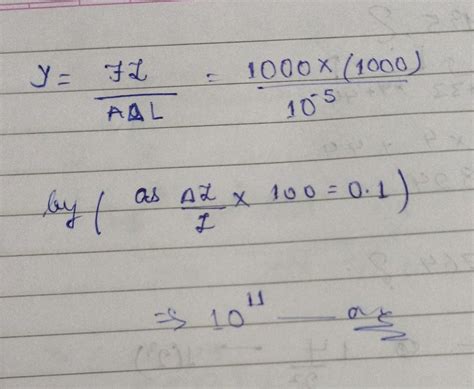 Y = FL / AΔL = 1000 × (1000) / 10^-5
by ( as ΔL/L × 100 = 0.1 )
⇒ 10^11 — ans